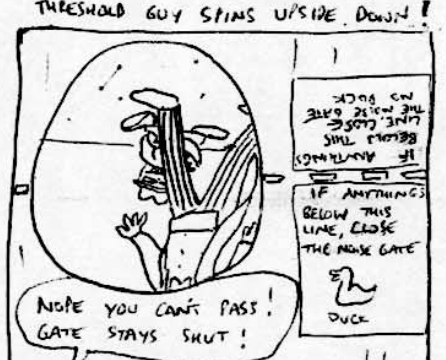 THRESHOLD GUY SPINS UPSIDE DOWN!
IF ANYTHINGS
BELOW THIS
LINE, CLOSE
THE NOISE GATE
NO DUCK
IF ANYTHINGS
BELOW THIS
LINE, CLOSE
THE NOISE GATE
DUCK
NOPE YOU CAN'T PASS!
GATE STAYS SHUT!